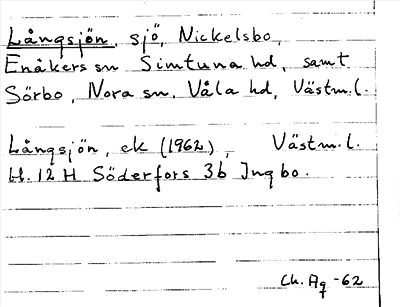 Långsjön, sjö, Nickelsbo,
Enåkers sn Simtuna hd, samt
Sörbo, Nora sn, Våla hd, Västm.l.
Långsjön, ek (1962), Västm.l.
H. 12 H Söderfors 3b Ingbo.
Ch. Ag -62